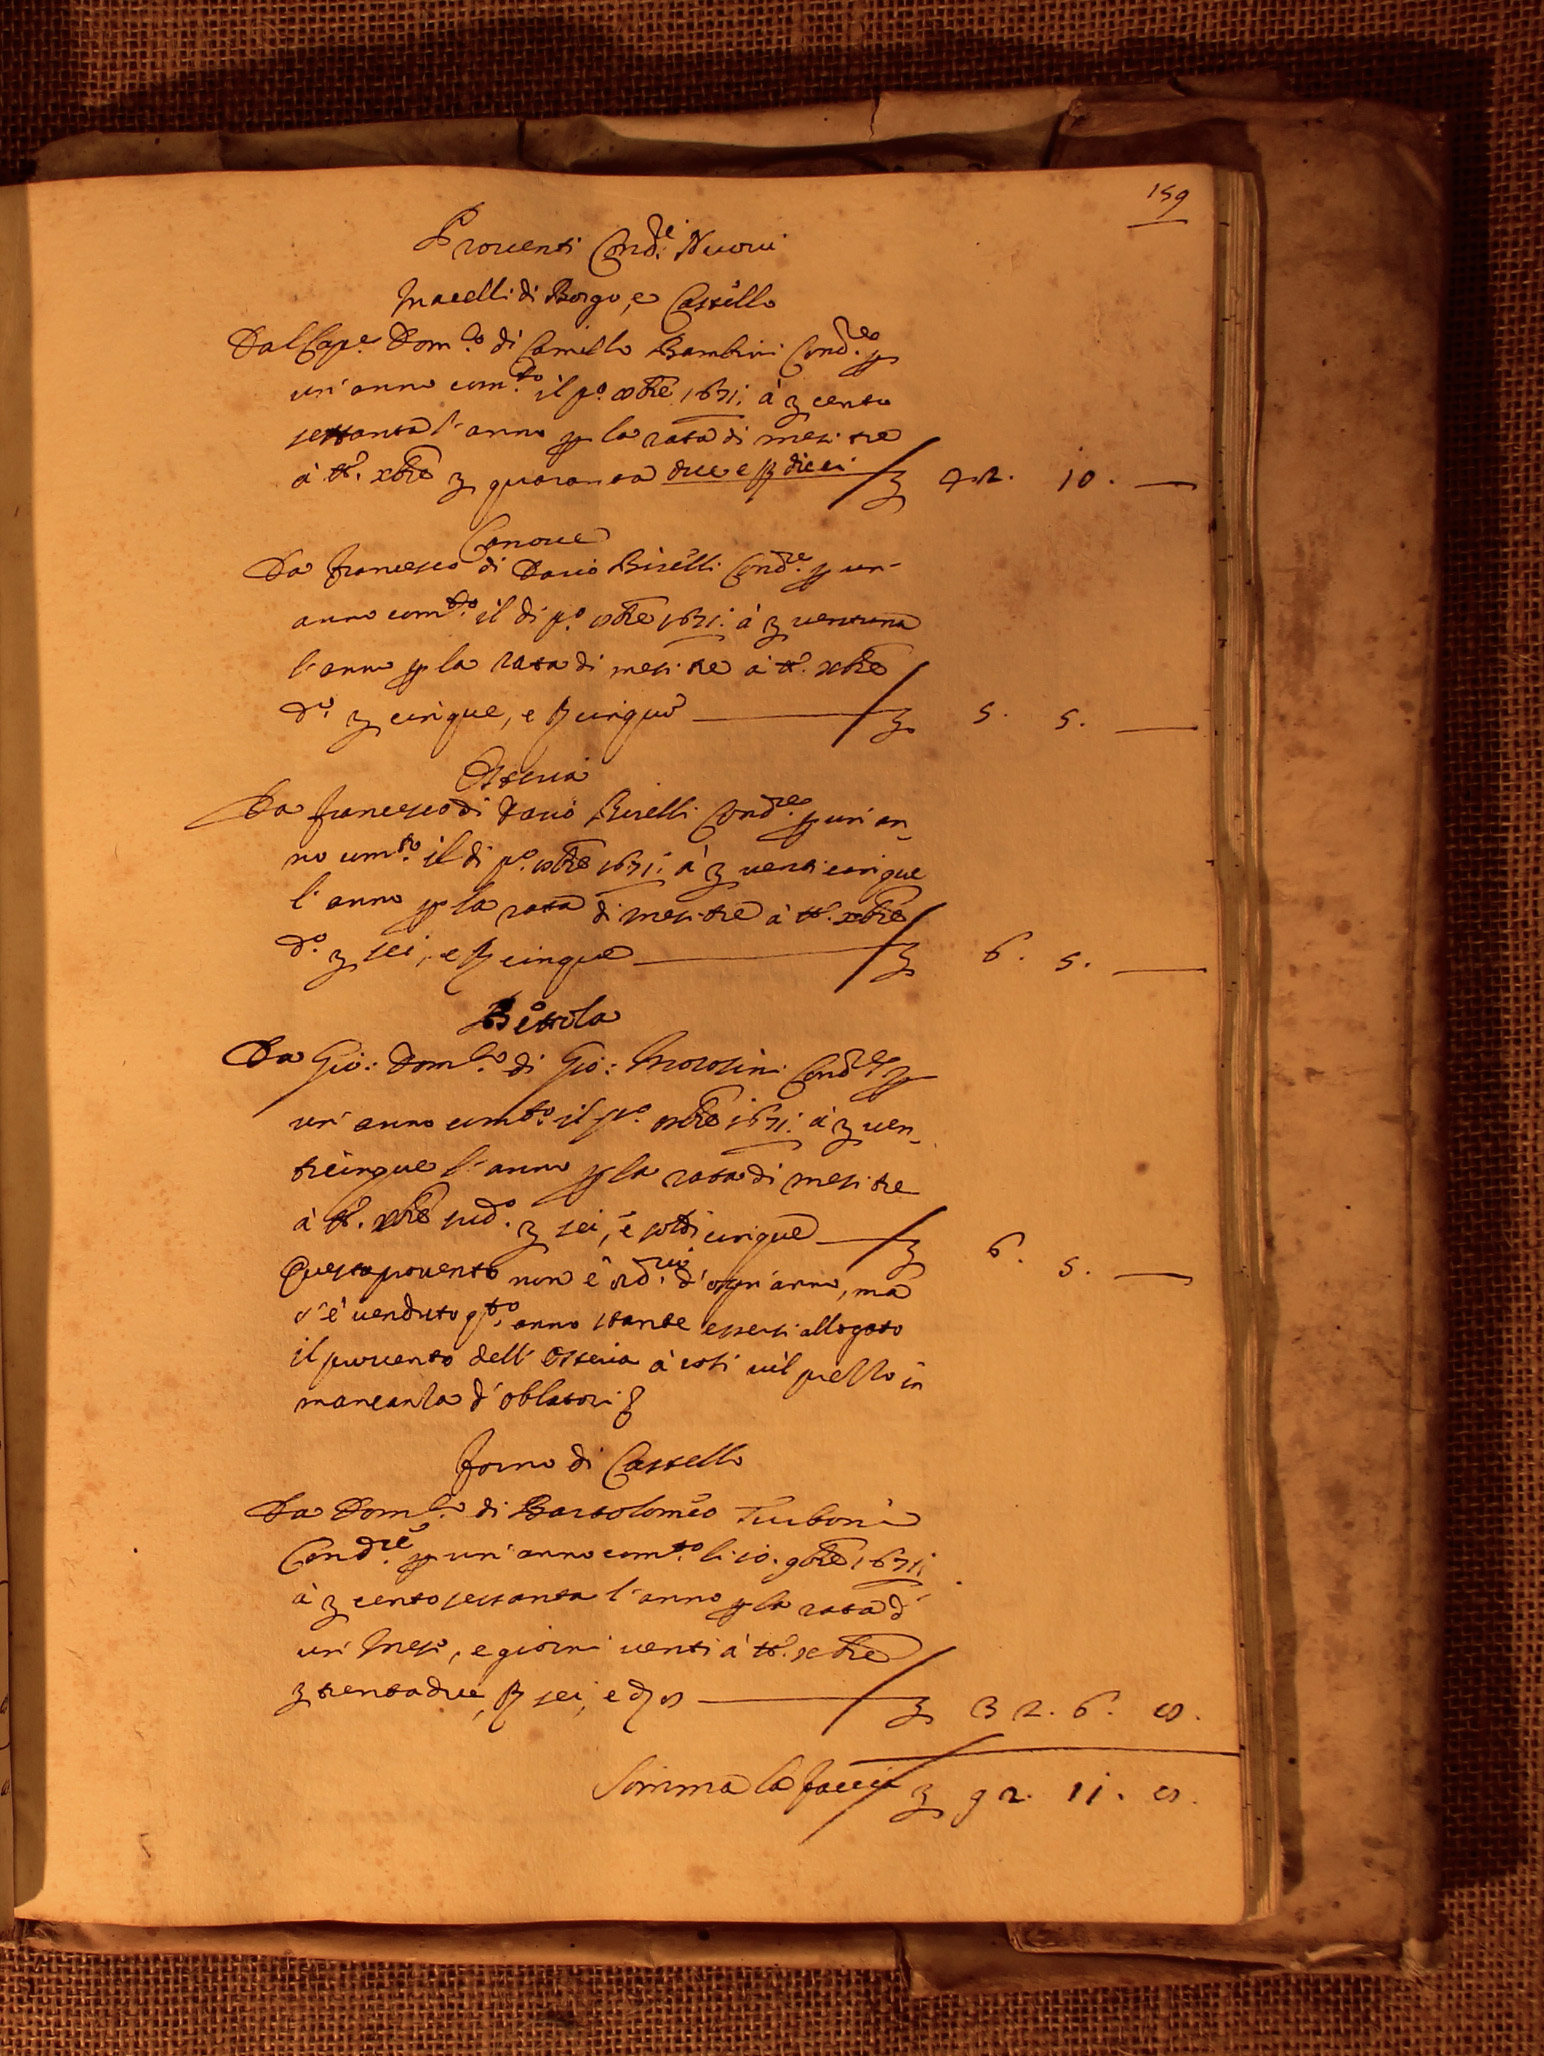 159
Proventi Cond.i Nuovi
Macelli di Borgo, e Castello
Dal Cap.e Dom.co di Camillo Bambini Cond.re p
un' anno com.to il p.o 8bre 1671: à ʒ cento
settanta l'anno p la rata di mesi tre
à tt.o xbre ʒ quaranta due e β dieci ʒ 42. 10. —
Canove
Da Francesco di Dario Biselli Cond.re p un-
anno com.to il di p.o 8bre 1671: à ʒ ventuna
l'anno p la rata di mesi tre à tt.o xbre
d.o ʒ cinque, e β cinque ʒ 5. 5. —
Osteria
Da Francesco di Dario Biselli Cond.re p un' an-
no com.to il di p.o 8bre 1671: à ʒ venti cinque
l'anno p la rata di mesi tre à tt.o xbre
d.o ʒ sei, e β cinque ʒ 6. 5. —
Bettola
Da Gio: Dom.co di Gio: Morosini Cond.re p
un' anno com.to il p.o 8bre 1671: à ʒ ven-
ticinque l'anno p la rata di mesi tre
à tt.o xbre sud.o ʒ sei, e soldi cinque ʒ 6. 5. —
Questo provento non è ord.rio d' ogn' anno, mà
s' è venduto q.to anno stante essersi allogato
il provento dell' Osteria à così vil prezzo in
mancanza d' oblatori
Forno di Castello
Da Dom.co di Bartolomeo Turboni
Cond.re p un' anno com.to li 10. 9bre 1671:
à ʒ cento sessanta l'anno p la rata d'
un Mese, e giorni venti à tt.o xbre
ʒ trentadue, β sei, e d 8 ʒ 32. 6. 8.
Somma la faccia ʒ 92. 11. 8.